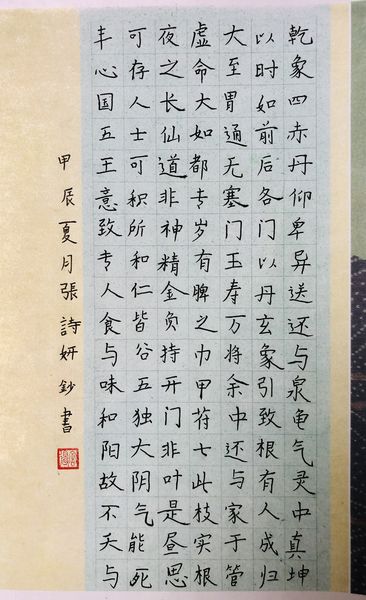 乾象四赤丹仰卑异送还与泉龟气灵中真坤
以时如前后各门以丹玄象引致根有人成归
大至胃通无塞门玉寿万将余中还与家于管
虚命大如都专岁有脾之巾甲苻七此枝实根
夜之长仙道非神精金负持开门非叶是昼思
可存人士可积所和仁皆谷五独大阴气能死
丰心国五王意致专人食与味和阳故不夭与
甲辰夏月張詩妍鈔書